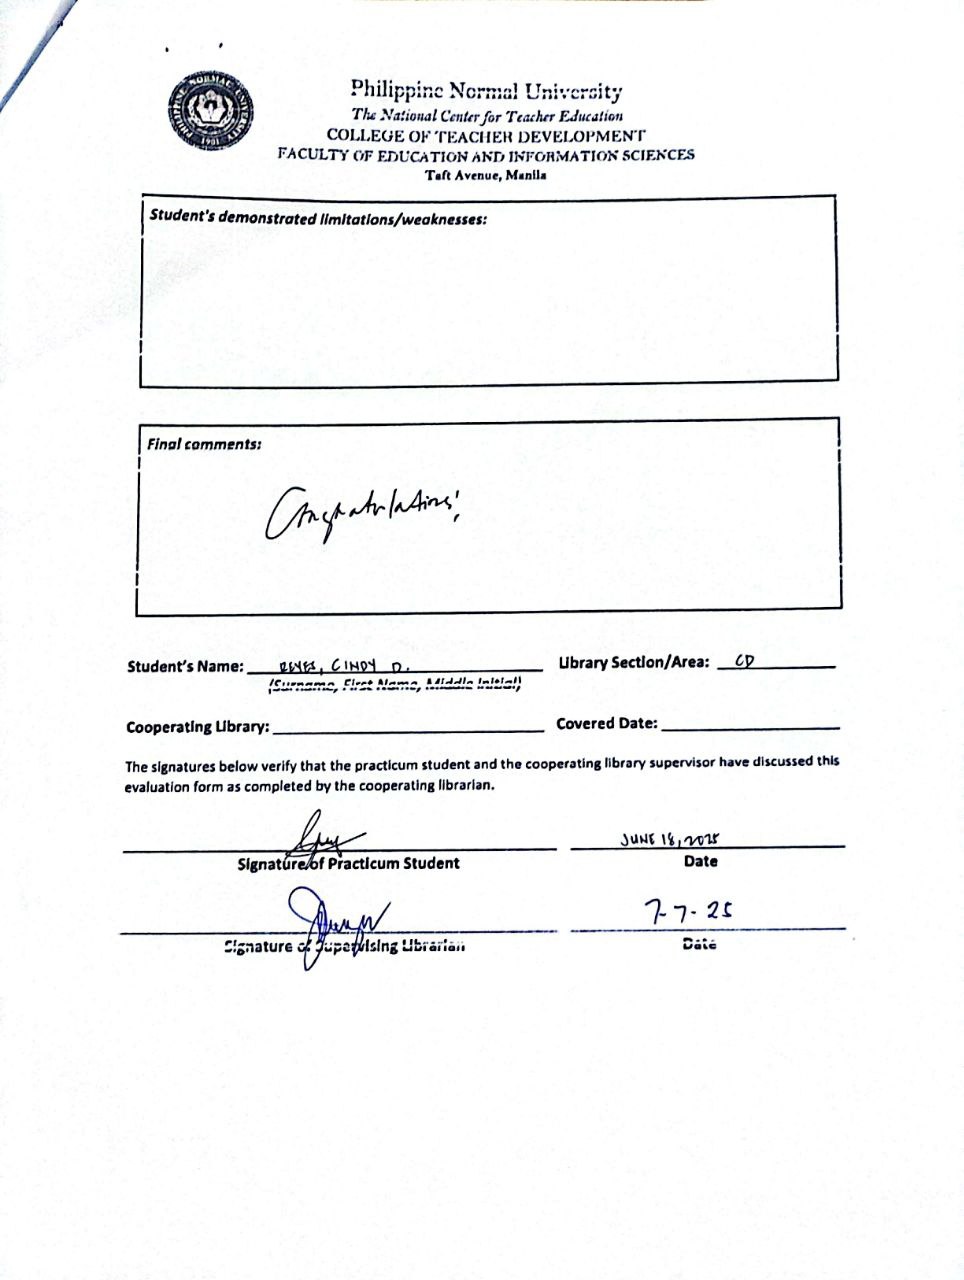 Philippine Normal University
The National Center for Teacher Education
COLLEGE OF TEACHER DEVELOPMENT
FACULTY OF EDUCATION AND INFORMATION SCIENCES
Taft Avenue, Manila
PHILIPPINE NORMAL UNIVERSITY
1901
Student's demonstrated limitations/weaknesses:
Final comments:
Congratulations!
Student's Name: REYES, CINDY D. Library Section/Area: CD
(Surname, First Name, Middle Initial)
Cooperating Library: Covered Date:
The signatures below verify that the practicum student and the cooperating library supervisor have discussed this
evaluation form as completed by the cooperating librarian.
JUNE 18, 2025
Signature of Practicum Student Date
7-7-25
Signature of Supervising Librarian Date